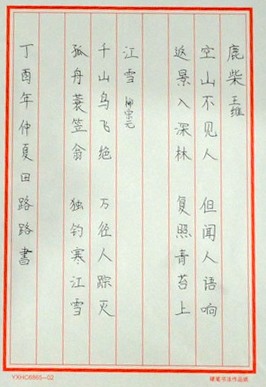 鹿柴 王维
空山不见人 但闻人语响
返景入深林 复照青苔上
江雪 柳宗元
千山鸟飞绝 万径人踪灭
孤舟蓑笠翁 独钓寒江雪
丁酉年仲夏田路路書
YXHC8865-02
硬笔书法作品纸